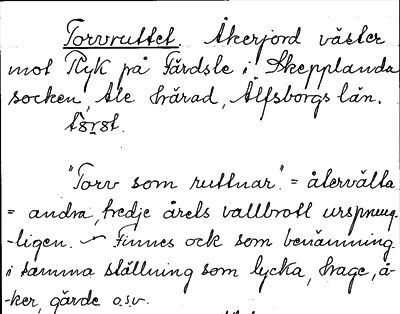 Torvruttet. Åkerjord väster
mot Ryk på Färdsle i Skepplanda
socken, Ale härad, Älfsborgs län.
"Torv som ruttnar." = återvälta
= andra, tredje årets vallbrott ursprung-
-ligen. Finnes ock som benämning
i samma ställning som lycka, hage, å-
-ker, gärde o.s.v.